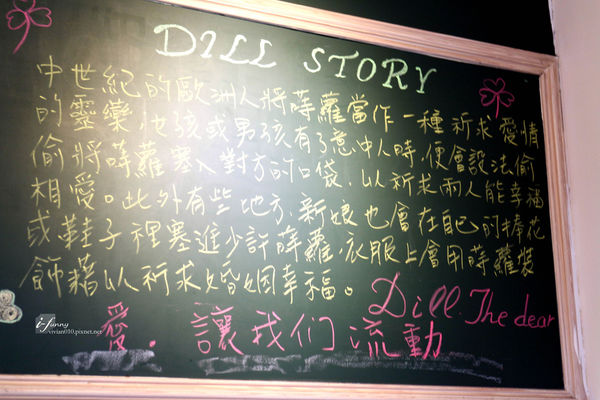 DILL STORY
中世紀的歐洲人將蒔蘿當作一種祈求愛情
的靈藥，女孩或男孩有了意中人時，便會設法偷
偷將蒔蘿塞入對方的口袋，以祈求兩人能幸福
相愛。此外有些地方，新娘也會在自己的捧花
或鞋子裡塞進少許蒔蘿，衣服上會用蒔蘿裝
飾藉以祈求婚姻幸福。
Dill. The dear
愛. 讓我们流動
i-funny
vivian010.pixnet.net